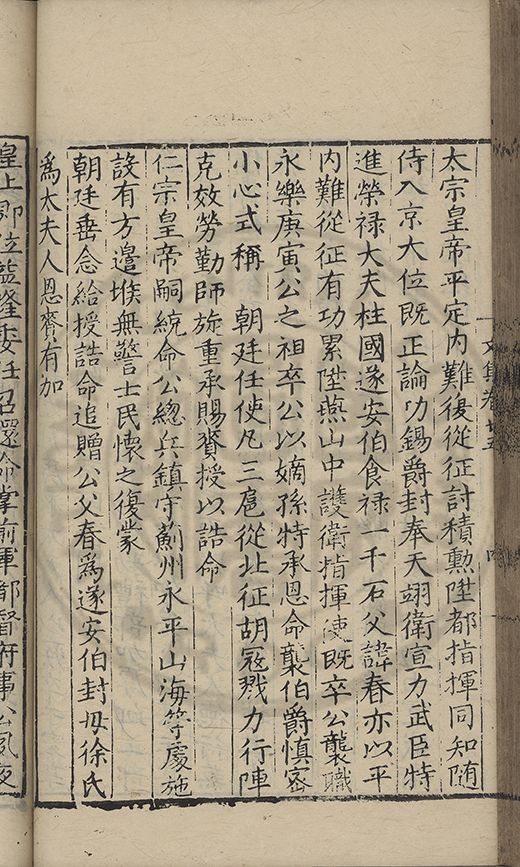 文集卷廿五
太宗皇帝平定内難後從征討積勲陞都指揮同知随
侍入京大位既正論功錫爵封奉天翊衛宣力武臣特
進榮禄大夫柱國遂安伯食禄一千石父諱春亦以平
内難從征有功累陞燕山中護衛指揮使既卒公襲職
永樂庚寅公之祖卒公以嫡孫特承恩命襲伯爵慎密
小心式稱　朝廷任使凡三扈從北征胡冦戮力行陣
克效勞勤師旋重承賜賚授以誥命
仁宗皇帝嗣統命公總兵鎮守薊州永平山海等處施
設有方邉堠無警士民懷之復蒙
朝廷垂念給授誥命追贈公父春爲遂安伯封母徐氏
爲太夫人恩賚有加
皇上即位益隆委任召還命掌前軍都督府事公夙夜